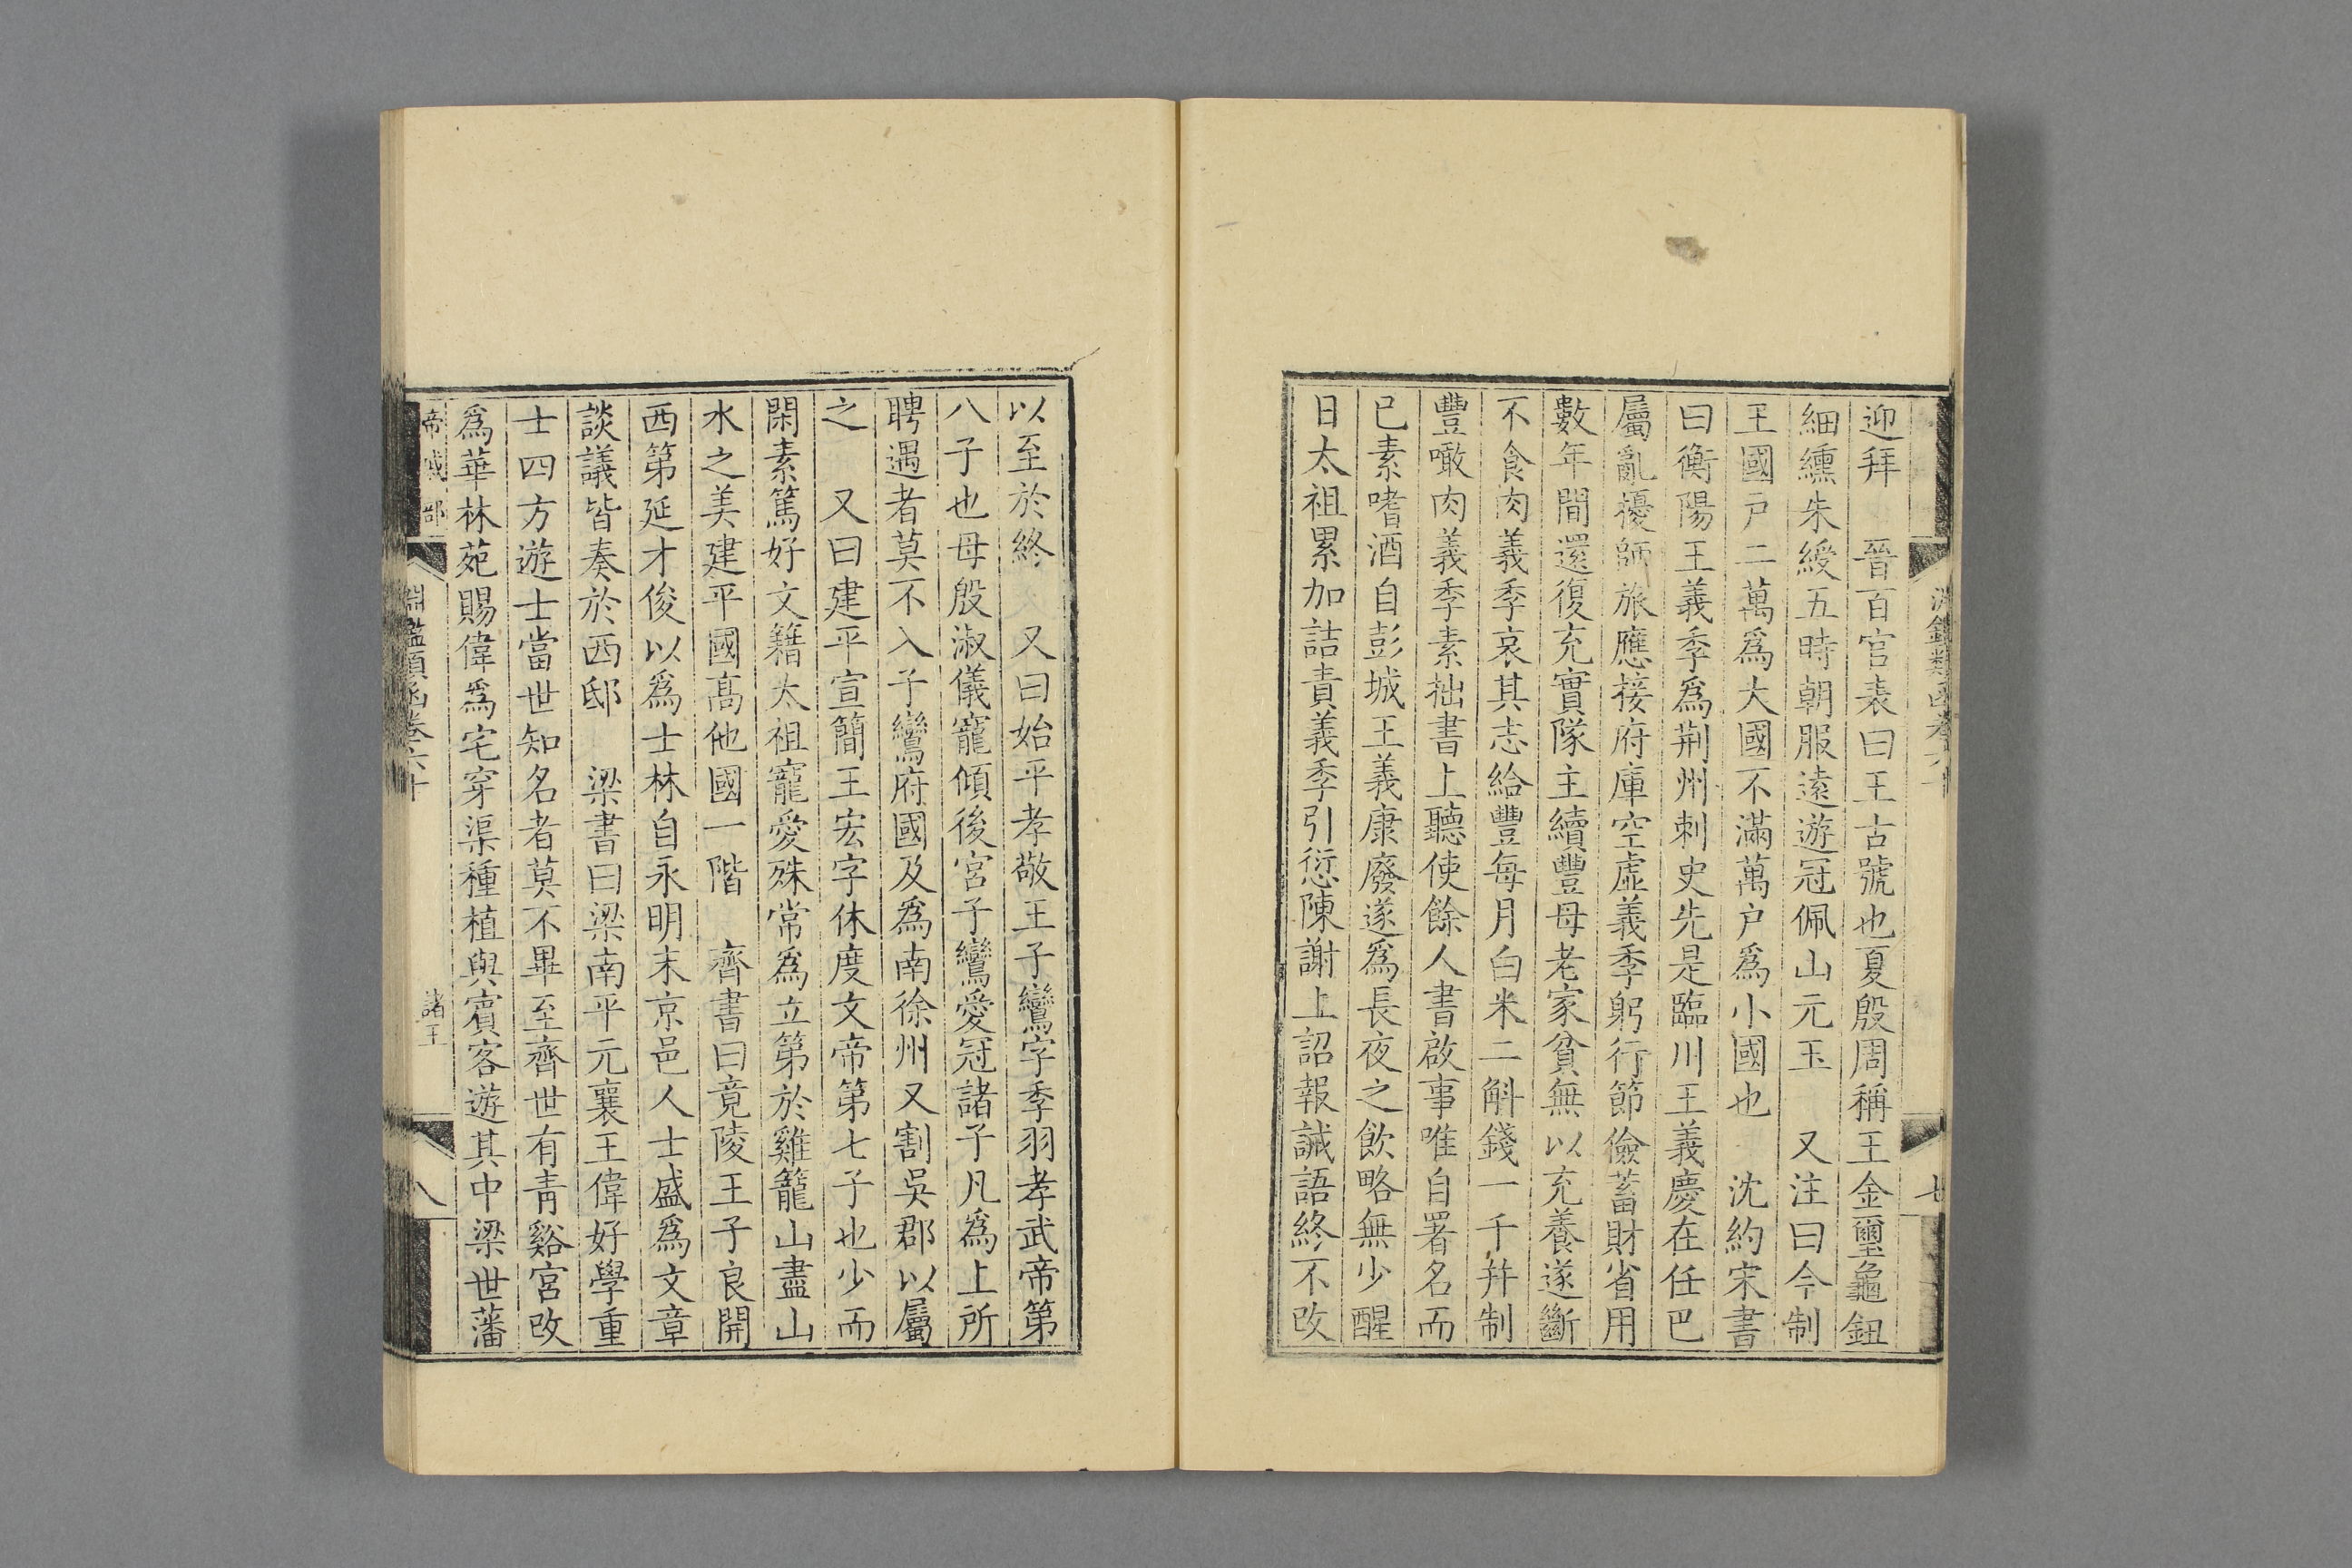 迎拜　晉百官表曰王古號也夏殷周稱王金璽龜鈕
細纁朱綬五時朝服遠遊冠佩山元玉　又注曰今制
王國戸二萬爲大國不滿萬戸爲小國也　沈約宋書
曰衡陽王義季爲荆州刺史先是臨川王義慶在任巴
屬亂擾師旅應接府庫空虛義季躬行節儉蓄財省用
數年間還復充實隊主續豐母老家貧無以充養遂斷
不食肉義季哀其志給豐每月白米二斛錢一千并制
豐噉肉義季素拙書上聽使餘人書啟事唯自署名而
已素嗜酒自彭城王義康廢遂爲長夜之飲略無少醒
日太祖累加詰責義季引愆陳謝上詔報誡語終不改
以至於終　又曰始平孝敬王子鸞字季羽孝武帝第
八子也母殷淑儀寵傾後宮子鸞愛冠諸子凡爲上所
聘遇者莫不入子鸞府國及爲南徐州又割吳郡以屬
之　又曰建平宣簡王宏字休度文帝第七子也少而
閑素篤好文籍太祖寵愛殊常爲立第於雞籠山盡山
水之美建平國高他國一階　齊書曰竟陵王子良開
西第延才俊以爲士林自永明末京邑人士盛爲文章
談議皆奏於西邸　梁書曰梁南平元襄王偉好學重
士四方遊士當世知名者莫不畢至齊世有青谿宮改
爲華林苑賜偉爲宅穿渠種植與賓客遊其中梁世藩
帝戚部　淵鑑類函卷六十　諸王　八